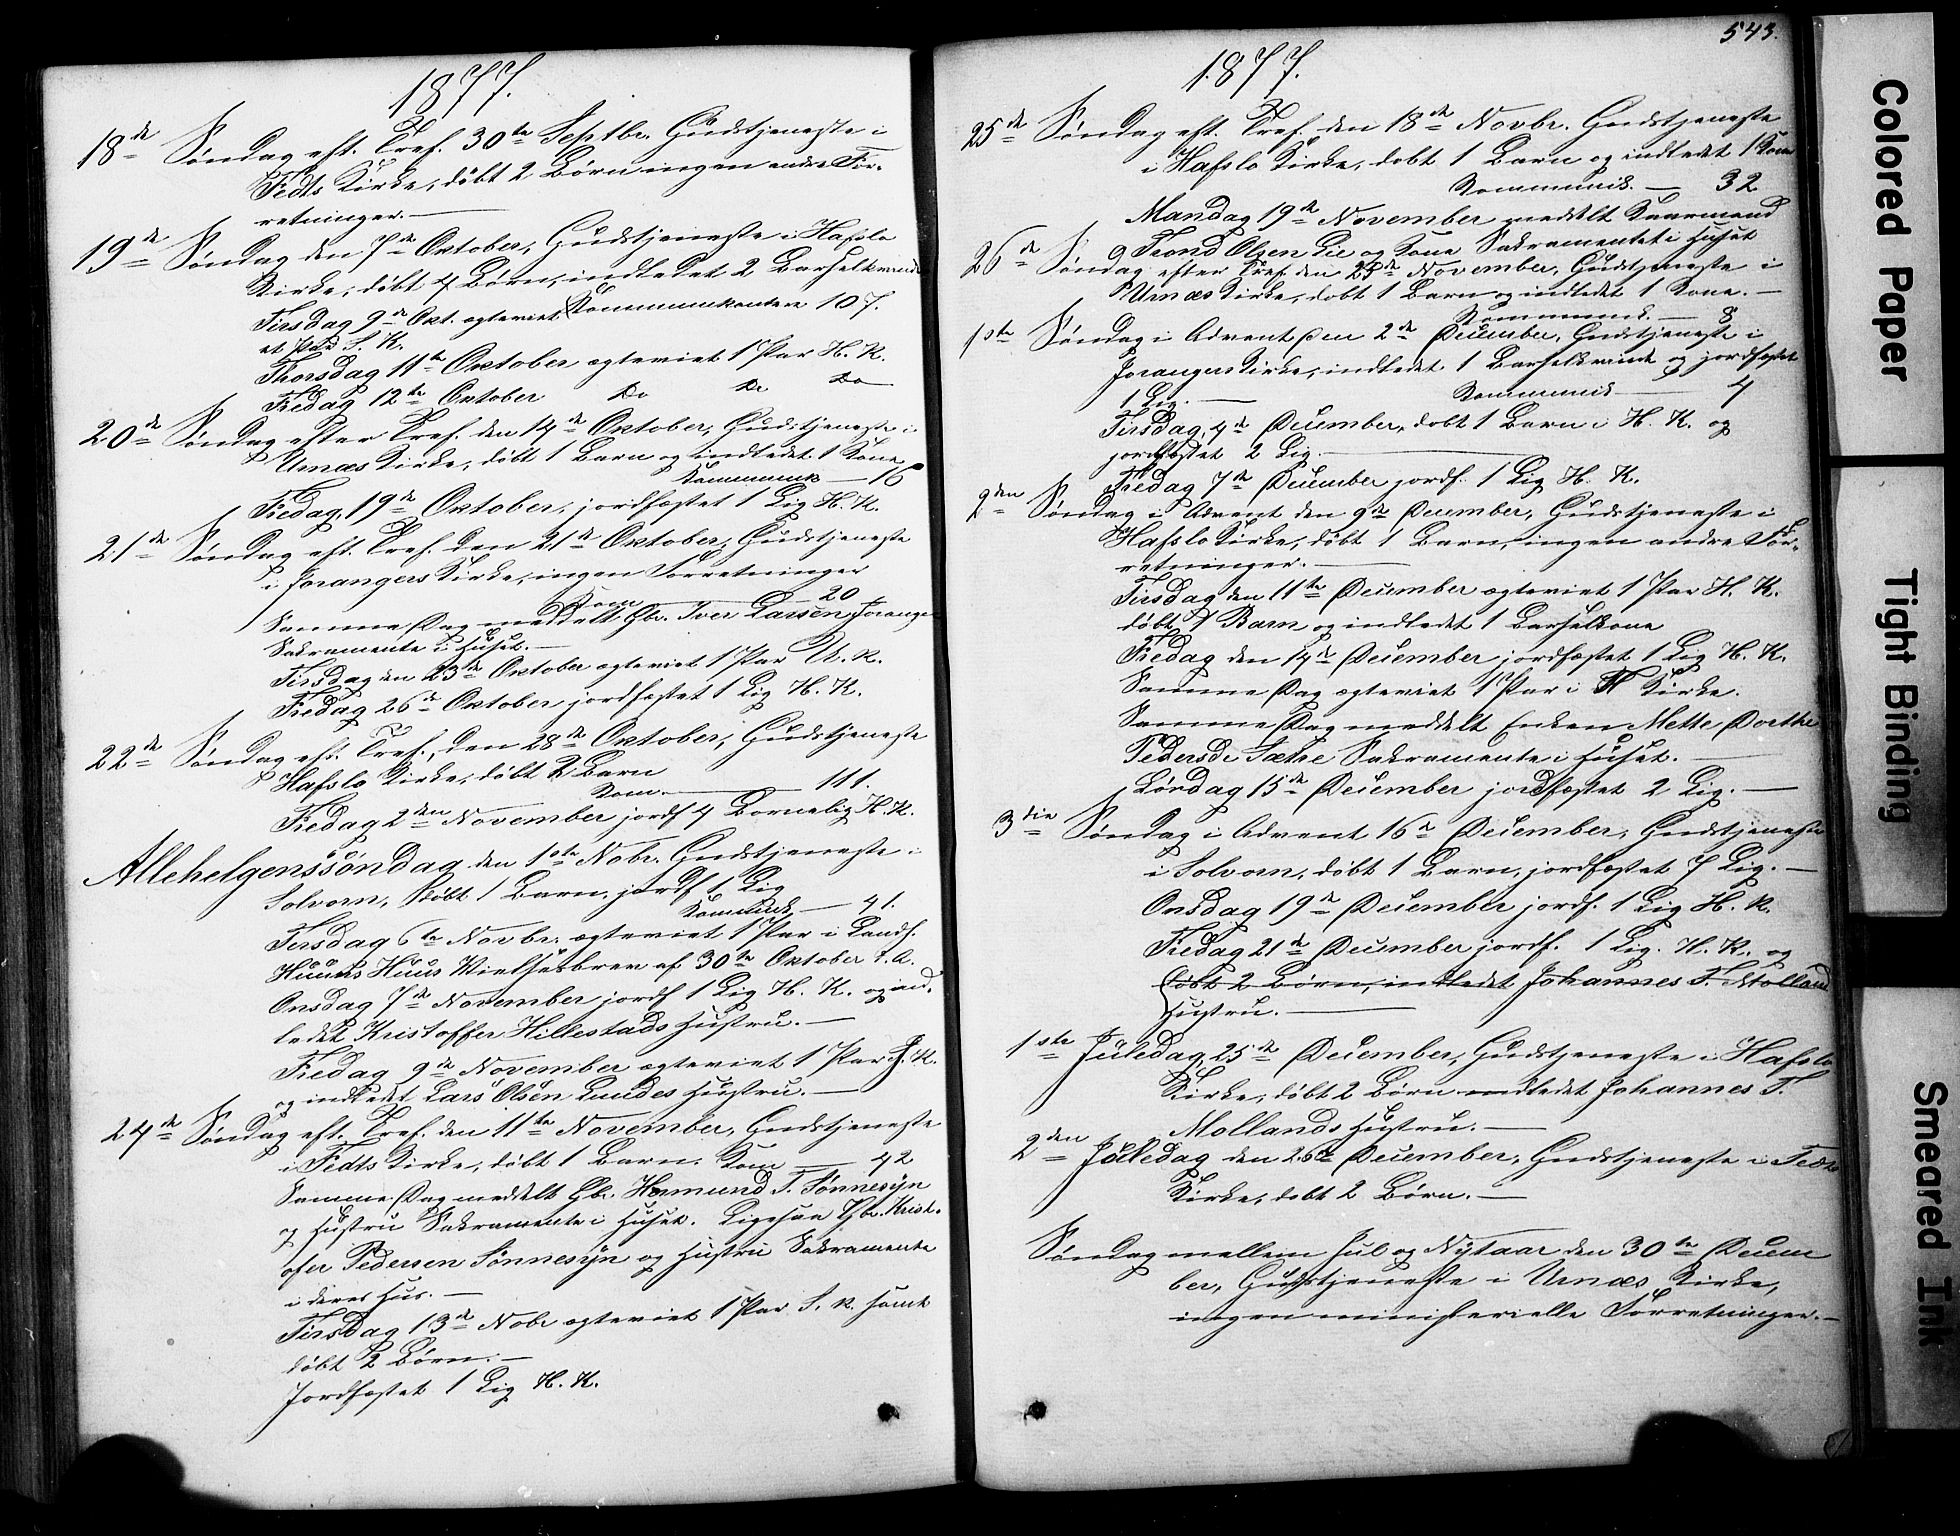 1877.
18de Søndag eft. Tref. 30te Septbr. Gudstjeneste i
Fedts Kirke, döbt 2 Börn ingen andre For-
retninger.
19de Søndag den 7de Oktober, Gudstjeneste i Hafslo
Kirke, döbt 4 Börn, indledet 2 Barselkvinder
Kommunikantere 107.
Tirsdag 9de Okt. egteviet
et Par S. K.
Thorsdag 11te Oktober egteviet 1 Par H. K.
Fredag 12te Oktober Do Do Do
20de Søndag efter Tref. den 14de Oktober, Gudstjeneste i
Urnæs Kirke, döbt 1 Barn og indledet 1 Kone
Kommunik — 16
Fredag 19de Oktober, jordfæstet 1 Lig H. K.
21de Søndag eft. Tref. den 21de Oktober, Gudstjeneste
i Jorangers Kirke, ingen Forretninger
Kom — 20
Samme Dag meddelt Gbr. Iver Larsen Joranger
Sakramente i Huset.
Tirsdag den 23de Oktober egteviet 1 Par U. K.
Fredag 26de Oktober jordfæstet 1 Lig H. K.
22de Søndag eft. Tref., den 28de Oktober, Gudstjeneste
Hafslo Kirke, döbt 2 Barn
Kom. — 111.
Fredag 2den November jordf 4 Bornelig H. K.
Allehelgenssöndag den 1ste Nobr. Gudstjeneste i
Solvorn, döbt 1 Barn, jordf 1 Lig
Kommunik — 41.
Tirsdag 6te Novbr. egteviet 1 Par i Landh.
Huuns Huus Vielsesbrev af 30te Oktober d. A.
Onsdag 7de November jordf 1 Lig H. K. og ind-
ledet Kristoffer Hillestads Hustru.
Fredag 9de November egteviet 1 Par J. K.
og indledet Lars Olsen Lundes Hustru.
24de Søndag eft. Tref. den 11te November, Gudstjeneste
i Fedts Kirke, döbt 1 Barn. Kom — 42
Samme Dag meddelt Gbr. Hermund T. Sønnesyn
og Hustru Sakramente i Huset. Ligesaa Gbr. Krist-
ofer Pedersen Sønnesyn og Hustru Sakramente
i deres Hus.
Tirsdag 13de Nobr egteviet 1 Par S. K. samt
döbt 2 Börn.
Jordfæstet 1 Lig H. K.
543.
1877.
25de Søndag eft. Tref. den 18de Novbr. Gudstjeneste
i Hafslo Kirke, döbt 1 Barn og indledet 1 Kone
Kommunik. — 32
Mandag 19de November meddelt Kaarmand
Trond Olsen Lie og Kone Sakramentet i Huset
26de Søndag efter Tref. den 25de November, Gudstjeneste i
Urnæs Kirke, döbt 1 Barn og indledet 1 Kone.
Kommunik. — 8
1ste Søndag i Advent den 2de December, Gudstjeneste i
Jorangers Kirke, indledet 1 Barselkvinde og jordfæstet
1 Lig. — Kommunik — 4
Tirsdag, 4de December, döbt 1 Barn i H. K. og
jordfæstet 2 Lig.
Fredag 7de December jordf. 1 Lig H. K.
2den Søndag i Advent den 9de December, Gudstjeneste i
Hafslo Kirke, döbt 1 Barn, ingen andre For-
retninger.
Tirsdag den 11te December egteviet 1 Par H. K.
döbt 1 Barn og indledet 1 Barselkone
Fredag den 14de December jordfæstet 1 Lig H. K.
Samme Dag egteviet 1 Par i H Kirke.
Samme Dag meddelt Enken Mette Dorthe
Pedersd. Sæhe Sakramente i Huset.
Lördag 15de December jordfæstet 2 Lig.
3die Søndag i Advent 16de December, Gudstjeneste
i Solvorn, döbt 1 Barn, jordfæstet 7 Lig.
Onsdag 19de December jordf. 1 Lig H. K.
Fredag 21de December jordf. 1 Lig. H. K. og
döbt 2 Börn, indledet Johannes T. Molland
Hustru.
1ste Juledag, 25de December, Gudstjeneste i Hafslo
Kirke, döbt 2 Börn indledet Johannes T.
Mollands Hustru.
2den Juledag den 26de December, Gudstjeneste i Fedts
Kirke, döbt 2 Börn.
Søndag mellem Jul og Nytaar den 30te Decem
ber, Gudstjeneste i Urnæs Kirke,
ingen ministerielle Forretninger.
Colored Paper
Tight Binding
Smeared Ink